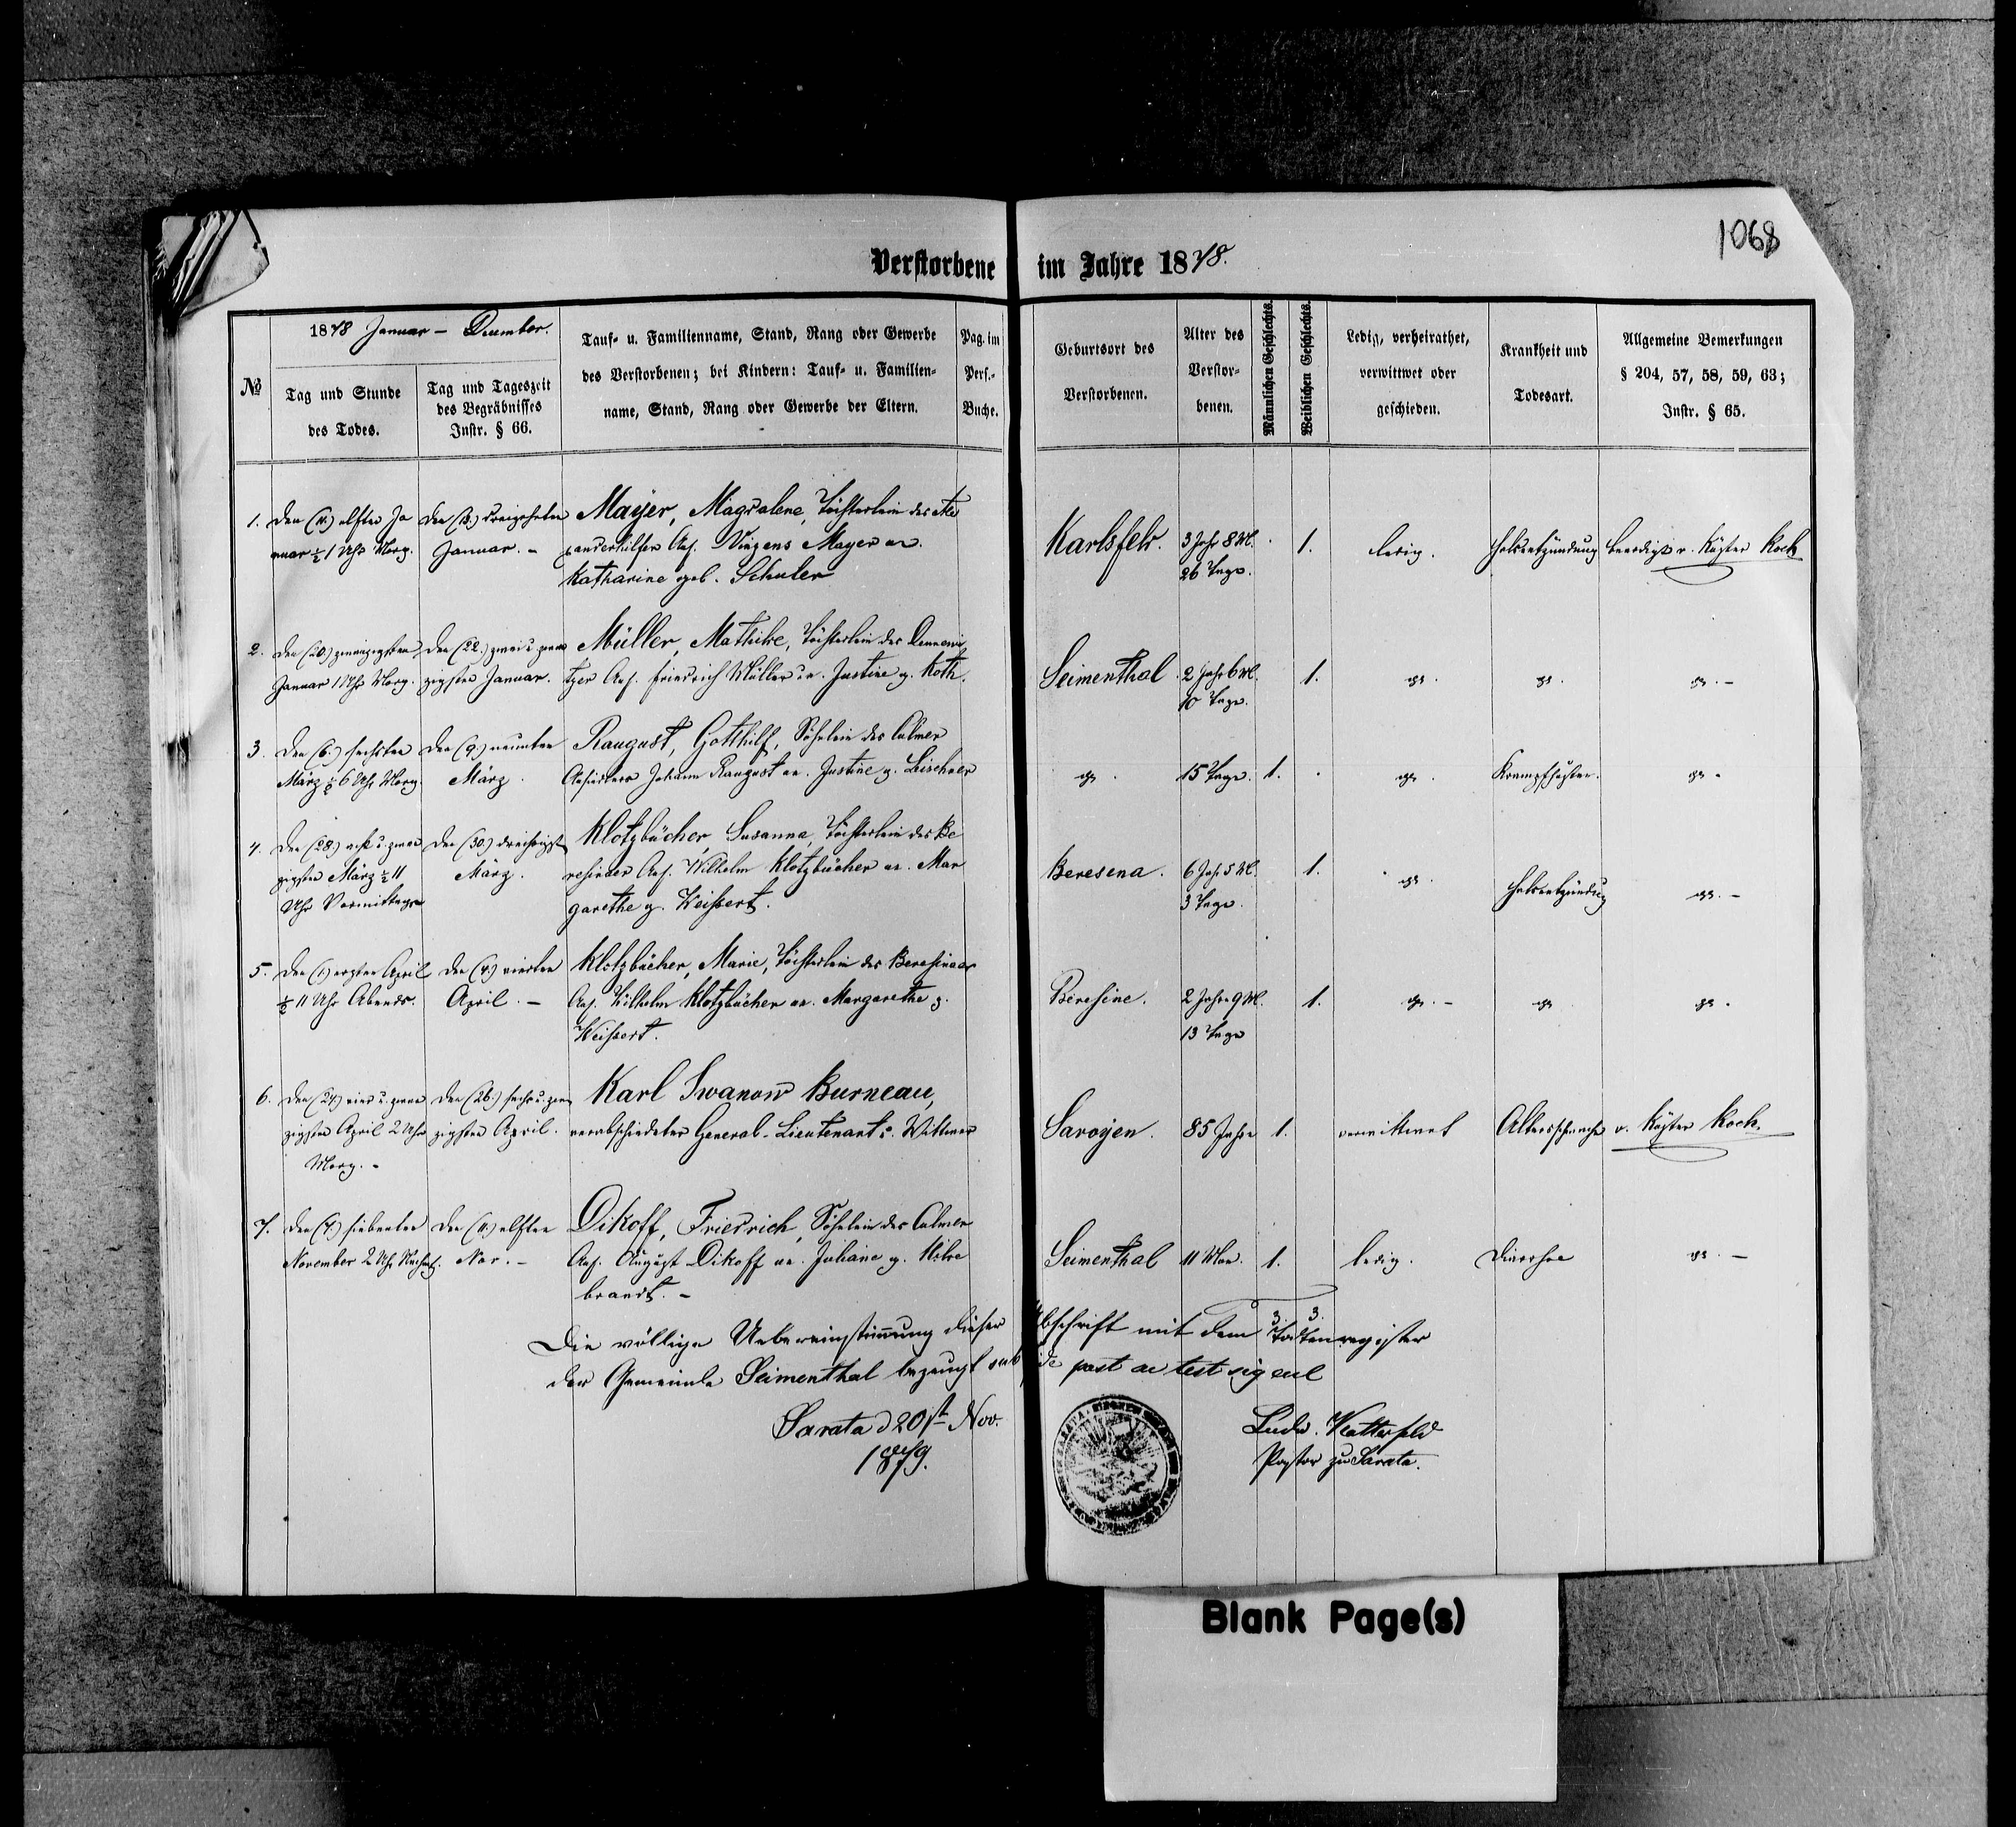 1068
Verstorbene im Jahre 1878.
1878 Januar – December.
№
Tag und Stunde
des Todes.
Tag und Tageszeit
des Begräbnisses
Instr. § 66.
Tauf- u. Familienname, Stand, Rang oder Gewerbe
des Verstorbenen; bei Kindern: Tauf- u. Familien-
name, Stand, Rang oder Gewerbe der Eltern.
Pag. im
Pers.-
Buche.
Geburtsort des
Verstorbenen.
Alter des
Verstor-
benen.
Männlichen Geschlechts.
Weiblichen Geschlechts.
Ledig, verheirathet,
verwittwet oder
geschieden.
Krankheit und
Todesart.
Allgemeine Bemerkungen
§ 204, 57, 58, 59, 63;
Instr. § 65.
1.
Den (11.) elften Ja
nuar ½ 1 Uhr Morg.
Den (13.) dreizehnten
Januar. –
Mayer, Magdalene, Töchterlein des Ale
xanderhilfer Ans. Vinzens Mayer u.
Katharine geb. Schuler
Karlsfeld.
3 Jahr 8 M.
26 Tage.
1.
ledig.
Halsentzündung
beerdigt v. Küster Koch
2.
Den (20.) zwanzigsten
Januar 1 Uhr Morg.
Den (22.) zwei u. zwan
zigsten Januar.
Müller, Mathilde, Töchterlein des Dennewi
tzer Ans. Friedrich Müller u. Justine g. Roth.
Seimenthal
2 Jahr 6 M.
10 Tage.
1.
3.
Den (6.) sechsten
März ½ 6 Uhr Morg.
Den (9.) neunten
März.
Raugust, Gotthilf, Söhnlein des Culmer
Ansiedlers Johann Raugust u. Justine g. Leischner
15 Tage.
1.
Krampfhusten.
4.
Den (28.) acht u. zwan
zigsten März ½ 11
Uhr Vormittags
Den (30.) dreißigst
März.
Klotzbücher, Susanna, Töchterlein des Be
resinaer Ans. Wilhelm Klotzbücher u. Mar
garethe g. Weissert.
Beresena.
6 Jahr 5 M.
3 Tage.
1.
Halsentzündung
5.
Den (1.) ersten April
½ 11 Uhr Abends.
Den (4.) vierten
April. –
Klotzbücher, Marie, Töchterlein des Beresinaer
Ans. Wilhelm Klotzbücher u. Margarethe g.
Weissert.
Beresine.
2 Jahre 9 M.
13 Tage
1.
6.
Den (24) vier u. zwan
zigsten April 2 Uhr
Morg. –
Den (26.) sechs u. zwan
zigsten April.
Karl Iwanow Burneau,
verabschiedeter General-Lieutenant u. Wittwer
Savoyen.
85 Jahre
1.
verwittwet
Altersschwäche
v. Küster Koch.
7.
Den (7.) siebenten
November 2 Uhr Nachm.
Den (11.) elften
Nov. –
Dikoff, Friedrich, Söhnlein des Culmer
Ans. August Dikoff u. Juliane g. Hilde
brandt. –
Seimenthal
11 Mon.
1.
ledig.
Diarrhoe
3. 3.
Die völlige Uebereinstimmung dieser Abschrift mit dem Todtenregister
der Gemeinde Seimenthal bezeugt sub fide past ac test sig eccl
Sarata d 20st Nov.
1879.
Ludw. Katterfeld
Pastor zu Sarata.
Blank Page(s)